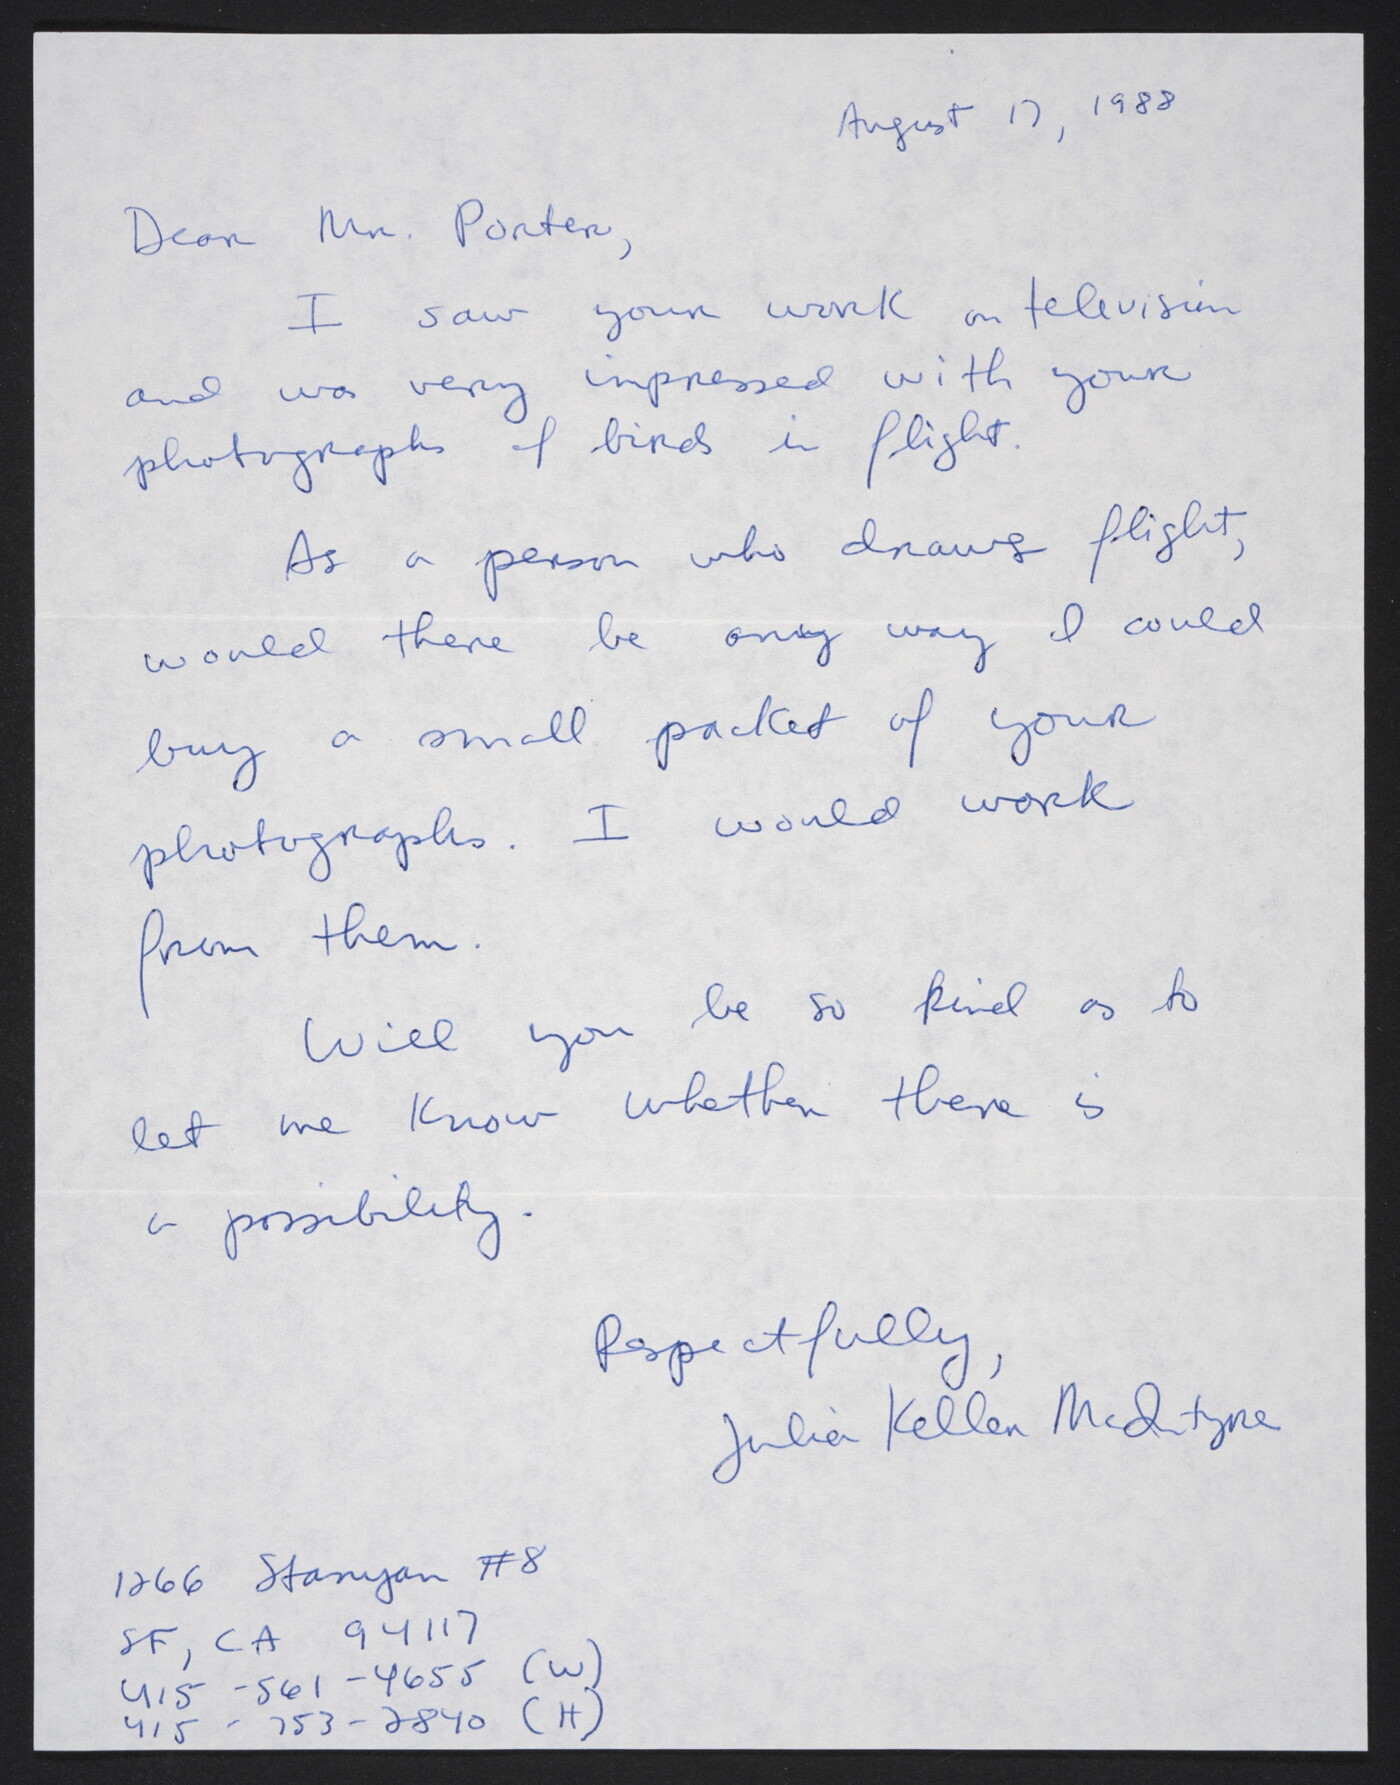 August 17, 1988
Dear Mr. Porter,
I saw your work on television
and was very impressed with your
photographs of birds in flight.
As a person who draws flight,
would there be any way I could
buy a small packet of your
photographs. I would work
from them.
Will you be so kind as to
let me know whether there is
a possibility.
Respectfully,
Julia Kellen McIntyre
1266 Stanyan #8
SF, CA 94117
415-561-4655 (W)
415-753-2840 (H)